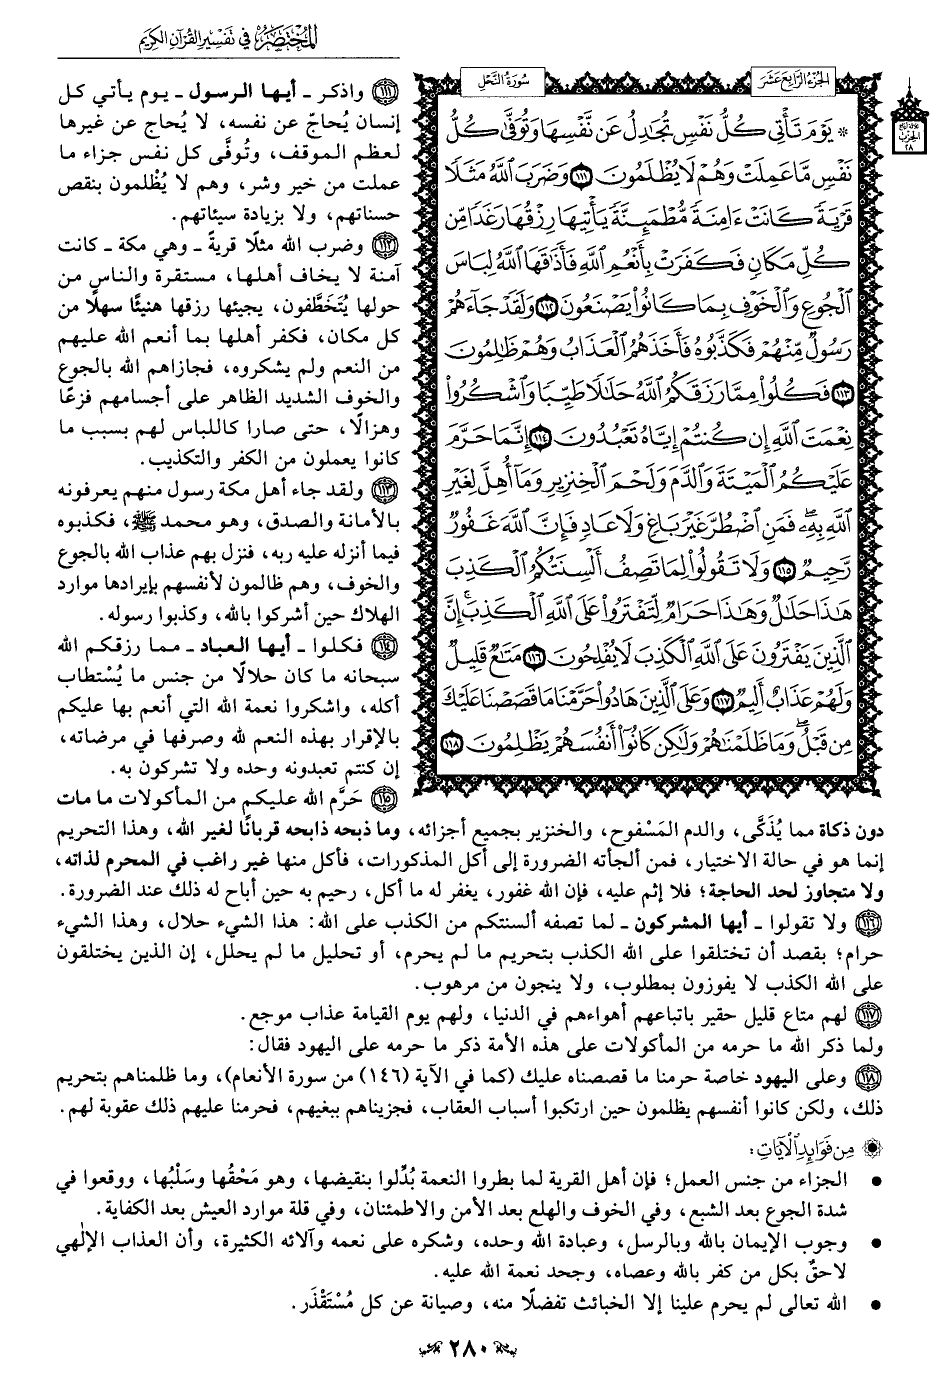 المختصر في تفسير القرآن الكريم
الجزء الرابع عشر
سورة النحل
الحزب
٢٨
۞ يَوْمَ تَأْتِي كُلُّ نَفْسٍ تُجَادِلُ عَن نَّفْسِهَا وَتُوَفَّىٰ كُلُّ
نَفْسٍ مَّا عَمِلَتْ وَهُمْ لَا يُظْلَمُونَ ١١١ وَضَرَبَ اللَّهُ مَثَلًا
قَرْيَةً كَانَتْ ءَامِنَةً مُّطْمَئِنَّةً يَأْتِيهَا رِزْقُهَا رَغَدًا مِّن
كُلِّ مَكَانٍ فَكَفَرَتْ بِأَنْعُمِ اللَّهِ فَأَذَاقَهَا اللَّهُ لِبَاسَ
الْجُوعِ وَالْخَوْفِ بِمَا كَانُوا يَصْنَعُونَ ١١٢ وَلَقَدْ جَاءَهُمْ
رَسُولٌ مِّنْهُمْ فَكَذَّبُوهُ فَأَخَذَهُمُ الْعَذَابُ وَهُمْ ظَالِمُونَ
١١٣ فَكُلُوا مِمَّا رَزَقَكُمُ اللَّهُ حَلَالًا طَيِّبًا وَاشْكُرُوا
نِعْمَتَ اللَّهِ إِن كُنتُمْ إِيَّاهُ تَعْبُدُونَ ١١٤ إِنَّمَا حَرَّمَ
عَلَيْكُمُ الْمَيْتَةَ وَالدَّمَ وَلَحْمَ الْخِنزِيرِ وَمَا أُهِلَّ لِغَيْرِ
اللَّهِ بِهِ فَمَنِ اضْطُرَّ غَيْرَ بَاغٍ وَلَا عَادٍ فَإِنَّ اللَّهَ غَفُورٌ
رَّحِيمٌ ١١٥ وَلَا تَقُولُوا لِمَا تَصِفُ أَلْسِنَتُكُمُ الْكَذِبَ
هَٰذَا حَلَالٌ وَهَٰذَا حَرَامٌ لِّتَفْتَرُوا عَلَى اللَّهِ الْكَذِبَ إِنَّ
الَّذِينَ يَفْتَرُونَ عَلَى اللَّهِ الْكَذِبَ لَا يُفْلِحُونَ ١١٦ مَتَاعٌ قَلِيلٌ
وَلَهُمْ عَذَابٌ أَلِيمٌ ١١٧ وَعَلَى الَّذِينَ هَادُوا حَرَّمْنَا مَا قَصَصْنَا عَلَيْكَ
مِن قَبْلُ وَمَا ظَلَمْنَاهُمْ وَلَٰكِن كَانُوا أَنفُسَهُمْ يَظْلِمُونَ ١١٨
١١١ واذكر ـ أيها الرسول ـ يوم يأتي كل
إنسان يُحاجّ عن نفسه، لا يُحاج عن غيرها
لعظم الموقف، وتُوفَّى كل نفس جزاء ما
عملت من خير وشر، وهم لا يُظْلمون بنقص
حسناتهم، ولا بزيادة سيئاتهم.
١١٢ وضرب الله مثلًا قريةً ـ وهي مكة ـ كانت
آمنة لا يخاف أهلها، مستقرة والناس من
حولها يُتَخَطَّفون، يجيئها رزقها هنيئًا سهلًا من
كل مكان، فكفر أهلها بما أنعم الله عليهم
من النعم ولم يشكروه، فجازاهم الله بالجوع
والخوف الشديد الظاهر على أجسامهم فزعًا
وهزالًا، حتى صارا كاللباس لهم بسبب ما
كانوا يعملون من الكفر والتكذيب.
١١٣ ولقد جاء أهل مكة رسول منهم يعرفونه
بالأمانة والصدق، وهو محمد ﷺ، فكذبوه
فيما أنزله عليه ربه، فنزل بهم عذاب الله بالجوع
والخوف، وهم ظالمون لأنفسهم بإيرادها موارد
الهلاك حين أشركوا بالله، وكذبوا رسوله.
١١٤ فكلوا ـ أيها العباد ـ مما رزقكم الله
سبحانه ما كان حلالًا من جنس ما يُسْتطاب
أكله، واشكروا نعمة الله التي أنعم بها عليكم
بالإقرار بهذه النعم لله وصرفها في مرضاته،
إن كنتم تعبدونه وحده ولا تشركون به.
١١٥ حَرَّم الله عليكم من المأكولات ما مات
دون ذكاة مما يُذَكَّى، والدم المَسْفوح، والخنزير بجميع أجزائه، وما ذبحه ذابحه قربانًا لغير الله، وهذا التحريم
إنما هو في حالة الاختيار، فمن ألجأته الضرورة إلى أكل المذكورات، فأكل منها غير راغب في المحرم لذاته،
ولا متجاوز لحد الحاجة؛ فلا إثم عليه، فإن الله غفور، يغفر له ما أكل، رحيم به حين أباح له ذلك عند الضرورة.
١١٦ ولا تقولوا ـ أيها المشركون ـ لما تصفه ألسنتكم من الكذب على الله: هذا الشيء حلال، وهذا الشيء
حرام؛ بقصد أن تختلقوا على الله الكذب بتحريم ما لم يحرم، أو تحليل ما لم يحلل، إن الذين يختلقون
على الله الكذب لا يفوزون بمطلوب، ولا ينجون من مرهوب.
١١٧ لهم متاع قليل حقير باتباعهم أهواءهم في الدنيا، ولهم يوم القيامة عذاب موجع.
ولما ذكر الله ما حرمه من المأكولات على هذه الأمة ذكر ما حرمه على اليهود فقال:
١١٨ وعلى اليهود خاصة حرمنا ما قصصناه عليك (كما في الآية (١٤٦) من سورة الأنعام)، وما ظلمناهم بتحريم
ذلك، ولكن كانوا أنفسهم يظلمون حين ارتكبوا أسباب العقاب، فجزيناهم ببغيهم، فحرمنا عليهم ذلك عقوبة لهم.
۞ من فوائد الآيات:
• الجزاء من جنس العمل؛ فإن أهل القرية لما بطروا النعمة بُدِّلوا بنقيضها، وهو مَحْقُها وسَلْبُها، ووقعوا في
شدة الجوع بعد الشبع، وفي الخوف والهلع بعد الأمن والاطمئنان، وفي قلة موارد العيش بعد الكفاية.
• وجوب الإيمان بالله وبالرسل، وعبادة الله وحده، وشكره على نعمه وآلائه الكثيرة، وأن العذاب الإلٰهي
لاحقٌ بكل من كفر بالله وعصاه، وجحد نعمة الله عليه.
• الله تعالى لم يحرم علينا إلا الخبائث تفضلًا منه، وصيانة عن كل مُسْتَقْذَر.
٢٨٠